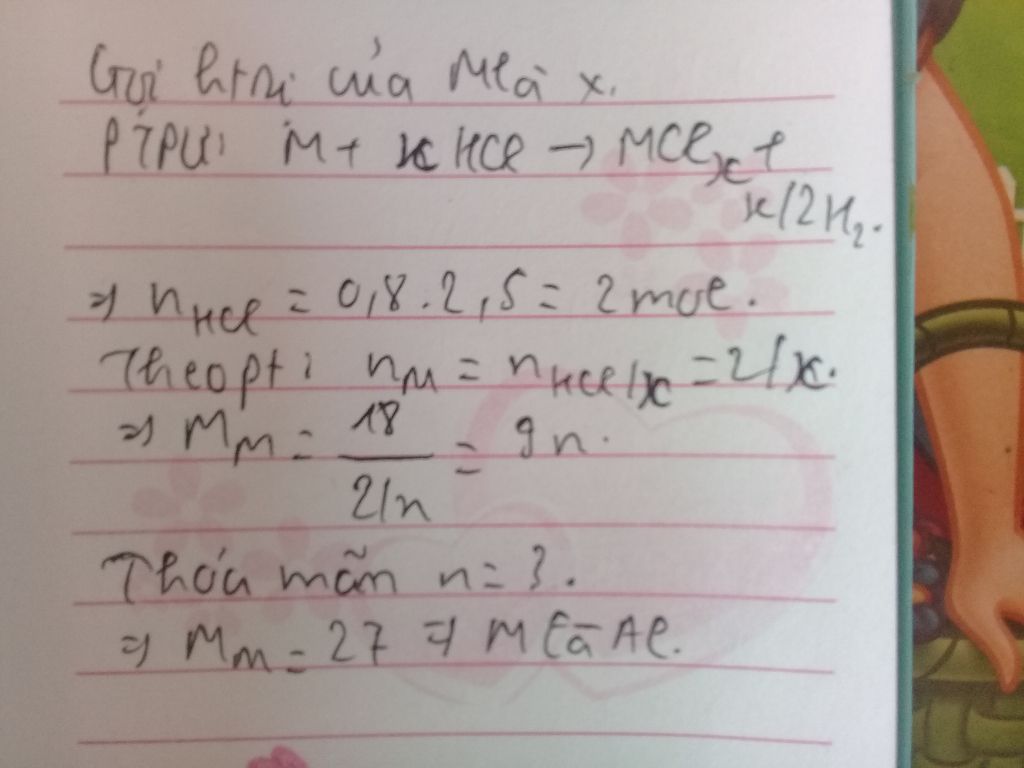 Gọi htrị của M là x.
PTPƯ: M + xHCl → MClx +
x/2H₂.
⇒ nHCl = 0,8.2,5 = 2 mol.
Theo pt: nM = nHCl/x = 2/x.
⇒ MM = 18/2/n = 9n.
Thỏa mãn n = 3.
⇒ MM = 27 ⇒ M là Al.